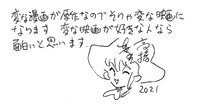 変な漫画が原作なのでそりゃ変な映画に
なります 変な映画が好きな人なら
面白いと思います。
2021